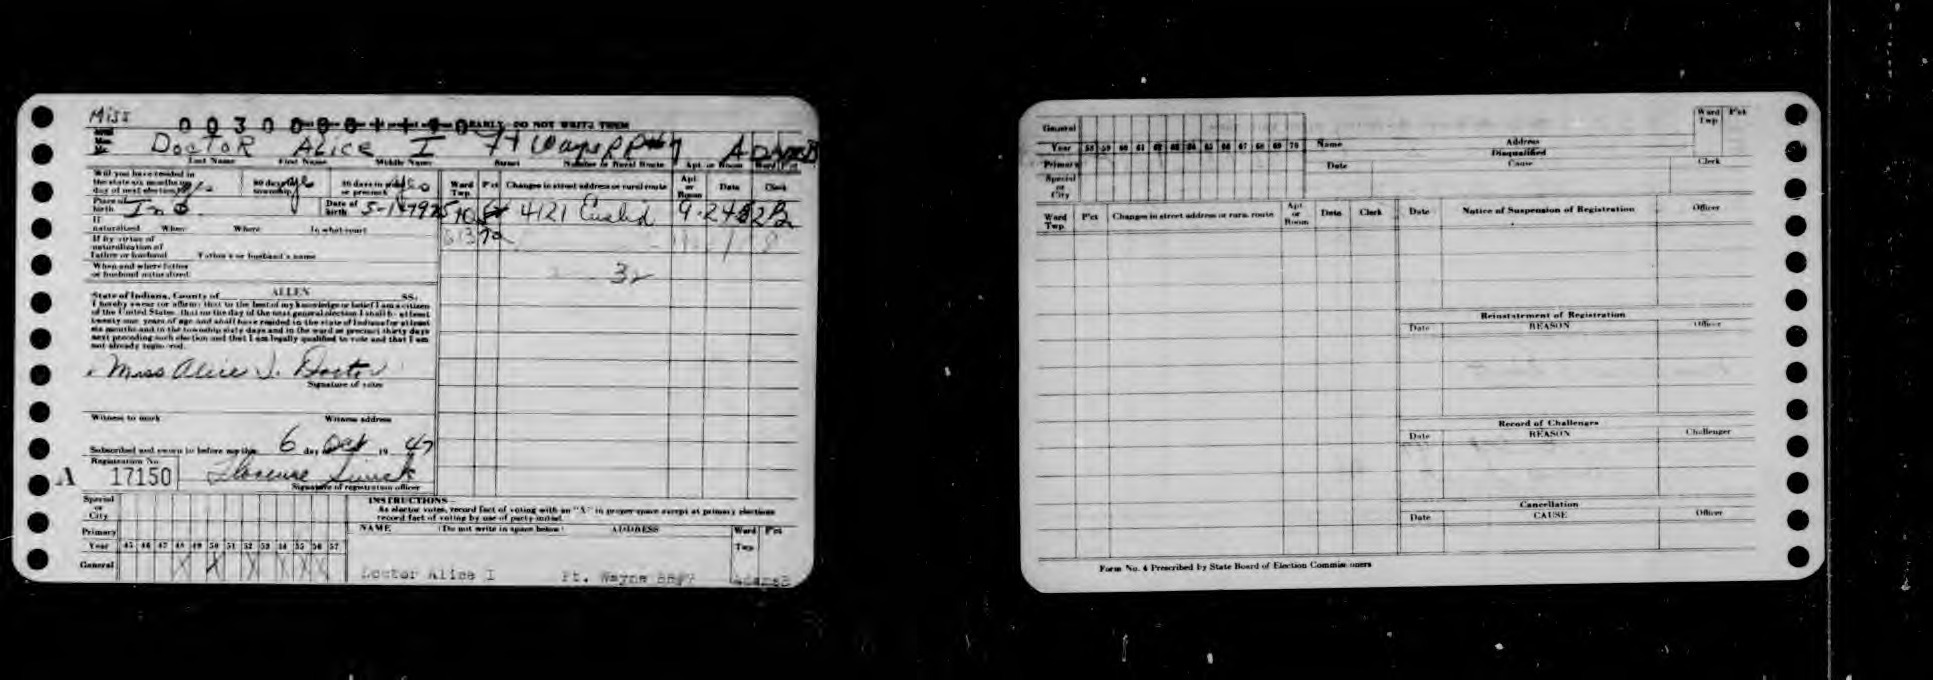 Miss
DO NOT WRITE THEM
DOCTOR ALICE I Ft Wayne RR#7 ADAMS B
Last Name First Name Middle Name Street Number or Rural Route Apt. or Room Ward Pct
Will you have resided in
the state six months on
day of next election
60 days in
township
30 days in
or precinct
Ward Twp. Pct Changes in street address or rural route Apt. or Room Date Clerk
Place of birth Ind. Date of birth
4121 Euclid
If naturalized When Where In what court
If by virtue of
naturalization of
Father or husband Father's or husband's name
When and where father
or husband naturalized
32
State of Indiana, County of ALLEN SS:
I hereby swear (or affirm) that to the best of my knowledge or belief I am a citizen
of the United States, that on the day of the next general election I shall be at least
twenty-one years of age and shall have resided in the state of Indiana for at least
six months and in the township sixty days and in the ward or precinct thirty days
next preceding such election and that I am legally qualified to vote and that I am
not already registered.
Miss Alice I. Doctor
Signature of voter
Witness to mark Witness address
Subscribed and sworn to before me this 6 day Oct 19 47
Registration No.
A 17150 Florence
Signature of registration officer
Special or City
Primary
Year 45 46 47 48 49 50 51 52 53 54 55 56 57
General X X X X X X
INSTRUCTIONS
As elector votes, record fact of voting with an "X" in proper space except at primary elections
record fact of voting by use of party initial.
NAME (Do not write in space below) ADDRESS Ward Twp Pct
Doctor Alice I Ft. Wayne RR#7 AdamsB
General
Year 58 59 60 61 62 63 64 65 66 67 68 69 70
Primary
Special or City
Name Address Ward Twp Pct
Disqualified
Date Cause Clerk
Ward Twp. Pct Changes in street address or rural route Apt. or Room Date Clerk
Date Notice of Suspension of Registration Officer
Reinstatement of Registration
Date REASON Officer
Record of Challenges
Date REASON Challenger
Cancellation
Date CAUSE Officer
Form No. 4 Prescribed by State Board of Election Commissioners